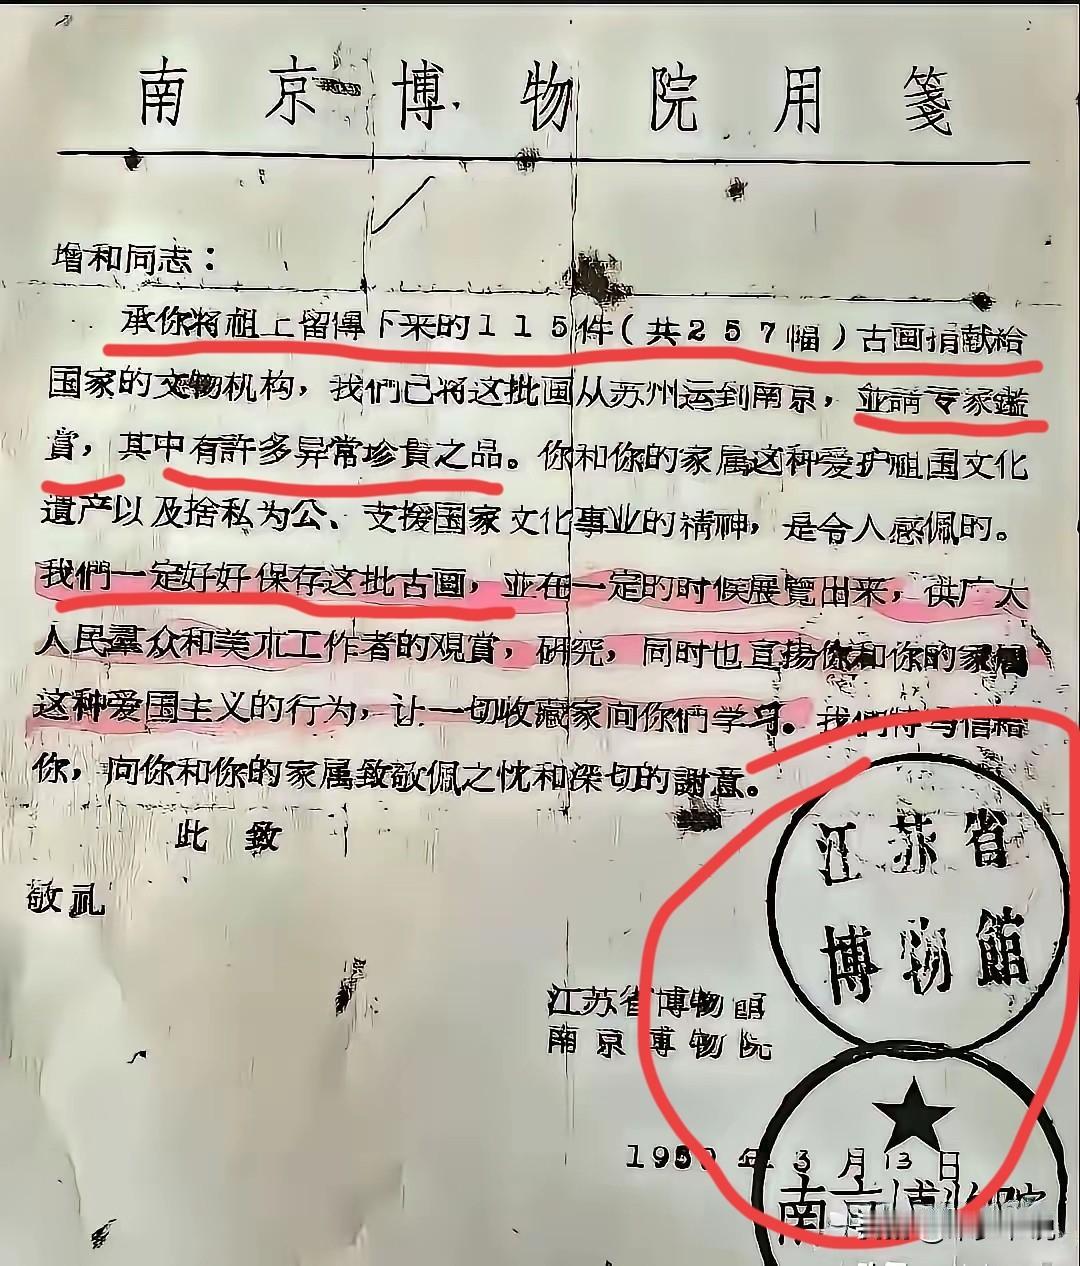 南京博物院用箋
增和同志：
承你将祖上留傳下来的115件(共257幅)古画捐献给
国家的文物机构，我們已将这批画从苏州运到南京，並請专家鑑
賞，其中有許多异常珍貴之品。你和你的家属这种爱护祖国文化
遺产以及捨私为公、支援国家文化事业的精神，是令人感佩的。
我們一定好好保存这批古画，並在一定的时候展覽出来，供广大
人民羣众和美朮工作者的观賞，研究，同时也宣扬你和你的家属
这种爱国主义的行为，让一切收藏家向你們学习。我們特写信給
你，向你和你的家属致敬佩之忱和深切的謝意。
此致
敬礼
江苏省
博物館
江苏省博物館
南京博物院
1959年3月13日
南京博物院